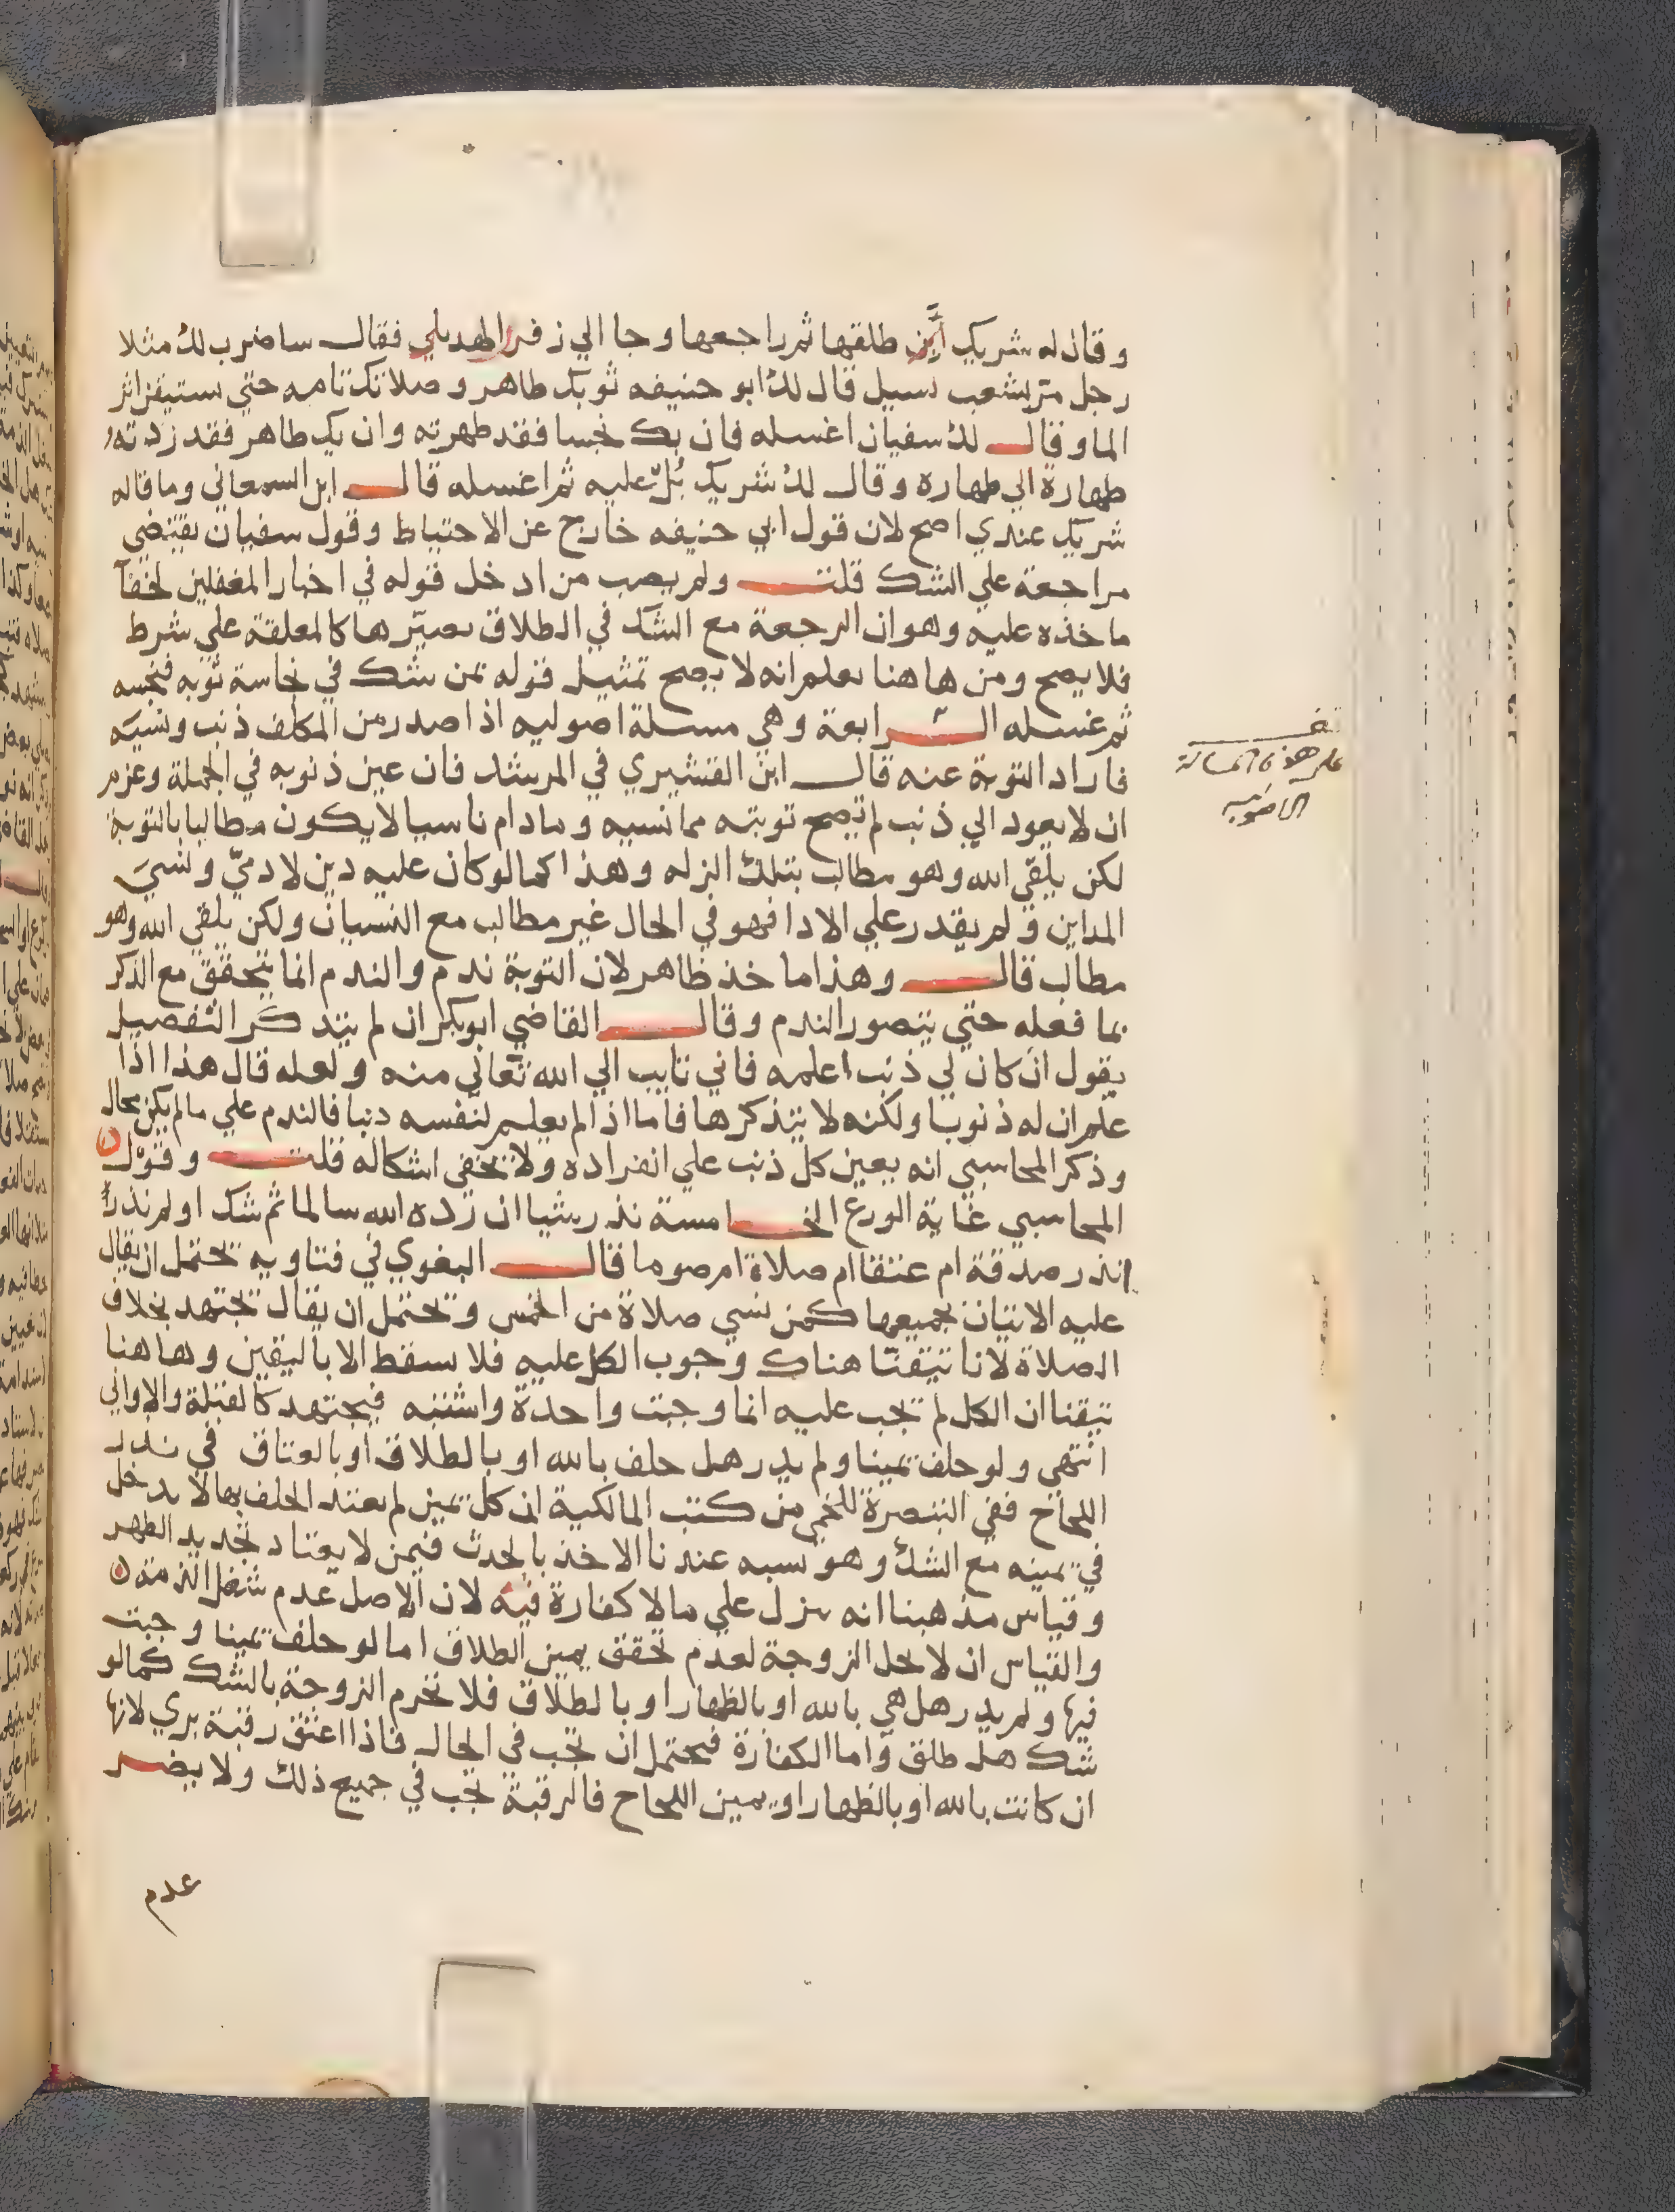 وقال له شريك طلقها ثم راجعها وجا الي زفر الهديلي فقال ساضرب لك مثلا
رجل مر بشعب يسيل قال لك ابو حنيفه ثوبك طاهر وصلاتك تامه حتي تستيقن اثر
الما وقال لك سفيان اغسله فان يك نجسا فقد طهرته وان يك طاهر فقد زدته
طهارة الي طهارة وقال لك شريك بُلْ عليه ثم اغسله قال ابن السمعاني وما قاله
شريك عندي اصح لان قول ابي حنيفه خارج عن الاحتياط وقول سفيان يقتضي
مراجعة علي الشك قلت ولم يصب من ادخل قوله في اخبار المغفلين لخفآ
ماخذه عليه وهو ان الرجعة مع الشك في الطلاق تصيّرها كالمعلقة علي شرط
فلا يصح ومن هاهنا يعلم انه لا يصح تمثيل قوله بمن شك في نجاسة ثوبه فنجسه
ثم غسله الرابعة وهي مسلة اصوليه اذا صدر من المكلف ذنب ونسيَه
فاراد التوبة عنه قال ابن القشيري في المرشد فان عين ذنوبه في الجملة وعزم
ان لا يعود الي ذنب لم تصح توبته مما نسيه وما دام ناسيا لا يكون مطالبا بالتوبة
لكن يلقي الله وهو مطالب بتلك الزله وهذا كما لو كان عليه دين لادميّ ونسيَ
المداين ولم يقدر علي الادا فهو في الحال غير مطالب مع النسيان ولكن يلقي الله وهو
مطالب قال وهذا ماخذ ظاهر لان التوبة ندم والندم انما يتحقق مع الذكر
بما فعله حتي يتصور الندم وقال القاضي ابو بكر ان لم يتذكر التفصيل
يقول ان كان لي ذنب اعلمه فاني تايب الي الله تعالي منه ولعله قال هذا اذا
علم ان له ذنوبا ولكنه لا يتذكرها فاما اذا لم يعلم لنفسه ذنبا فالندم علي ما لم يكن محال
وذكر المحاسبي انه يعين كل ذنب علي انفراده ولا يخفى اشكاله قلت وقول
المحاسبي غاية الورع الخامسة نذر شيا ان رده الله سالما ثم شك
انذر صدقة ام عتقا ام صلاة ام صوما قال البغوي في فتاويه يحتمل ان يقال
عليه الاتيان بجميعها كمن نسي صلاة من الخمس ويحتمل ان يقال يجتهد بخلاف
الصلاة لانا تيقنّا هناك وجوب الكل عليه فلا يسقط الا باليقين وهاهنا
تيقنا ان الكل لم تجب عليه انما وجبت واحدة واشتبه فيجتهد كالقبلة والاواني
انتهي ولو حلف يمينا ولم يدر هل حلف بالله او بالطلاق او بالعتاق في نذر
اللجاج ففي التبصرة للخمي من كتب المالكية ان كل يمين لم يعتد الحلف بها لا يدخل
في يمينه مع الشك وهو يشبه عندنا الاخذ بالحدث فيمن لا يعتاد تجديد الطهر
وقياس مذهبنا انه ينزل علي ما لا كفارة فيه لان الاصل عدم شغل الذمة
والقياس ان لا تحل الزوجة لعدم تحقق يمين الطلاق اما لو حلف يمينا وجبت
فيها ولم يدر هل هي بالله او بالظهار او بالطلاق فلا تحرم الزوجة بالشك كما لو
شك هل طلق واما الكفارة فيحتمل ان تجب في الحال فاذا اعتق رقبة بري لانها
ان كانت بالله او بالظهار او يمين اللجاج فالرقبة تجب في جميع ذلك ولا يضر
عدم
قف
علي هذه المسالة
الاصوليه